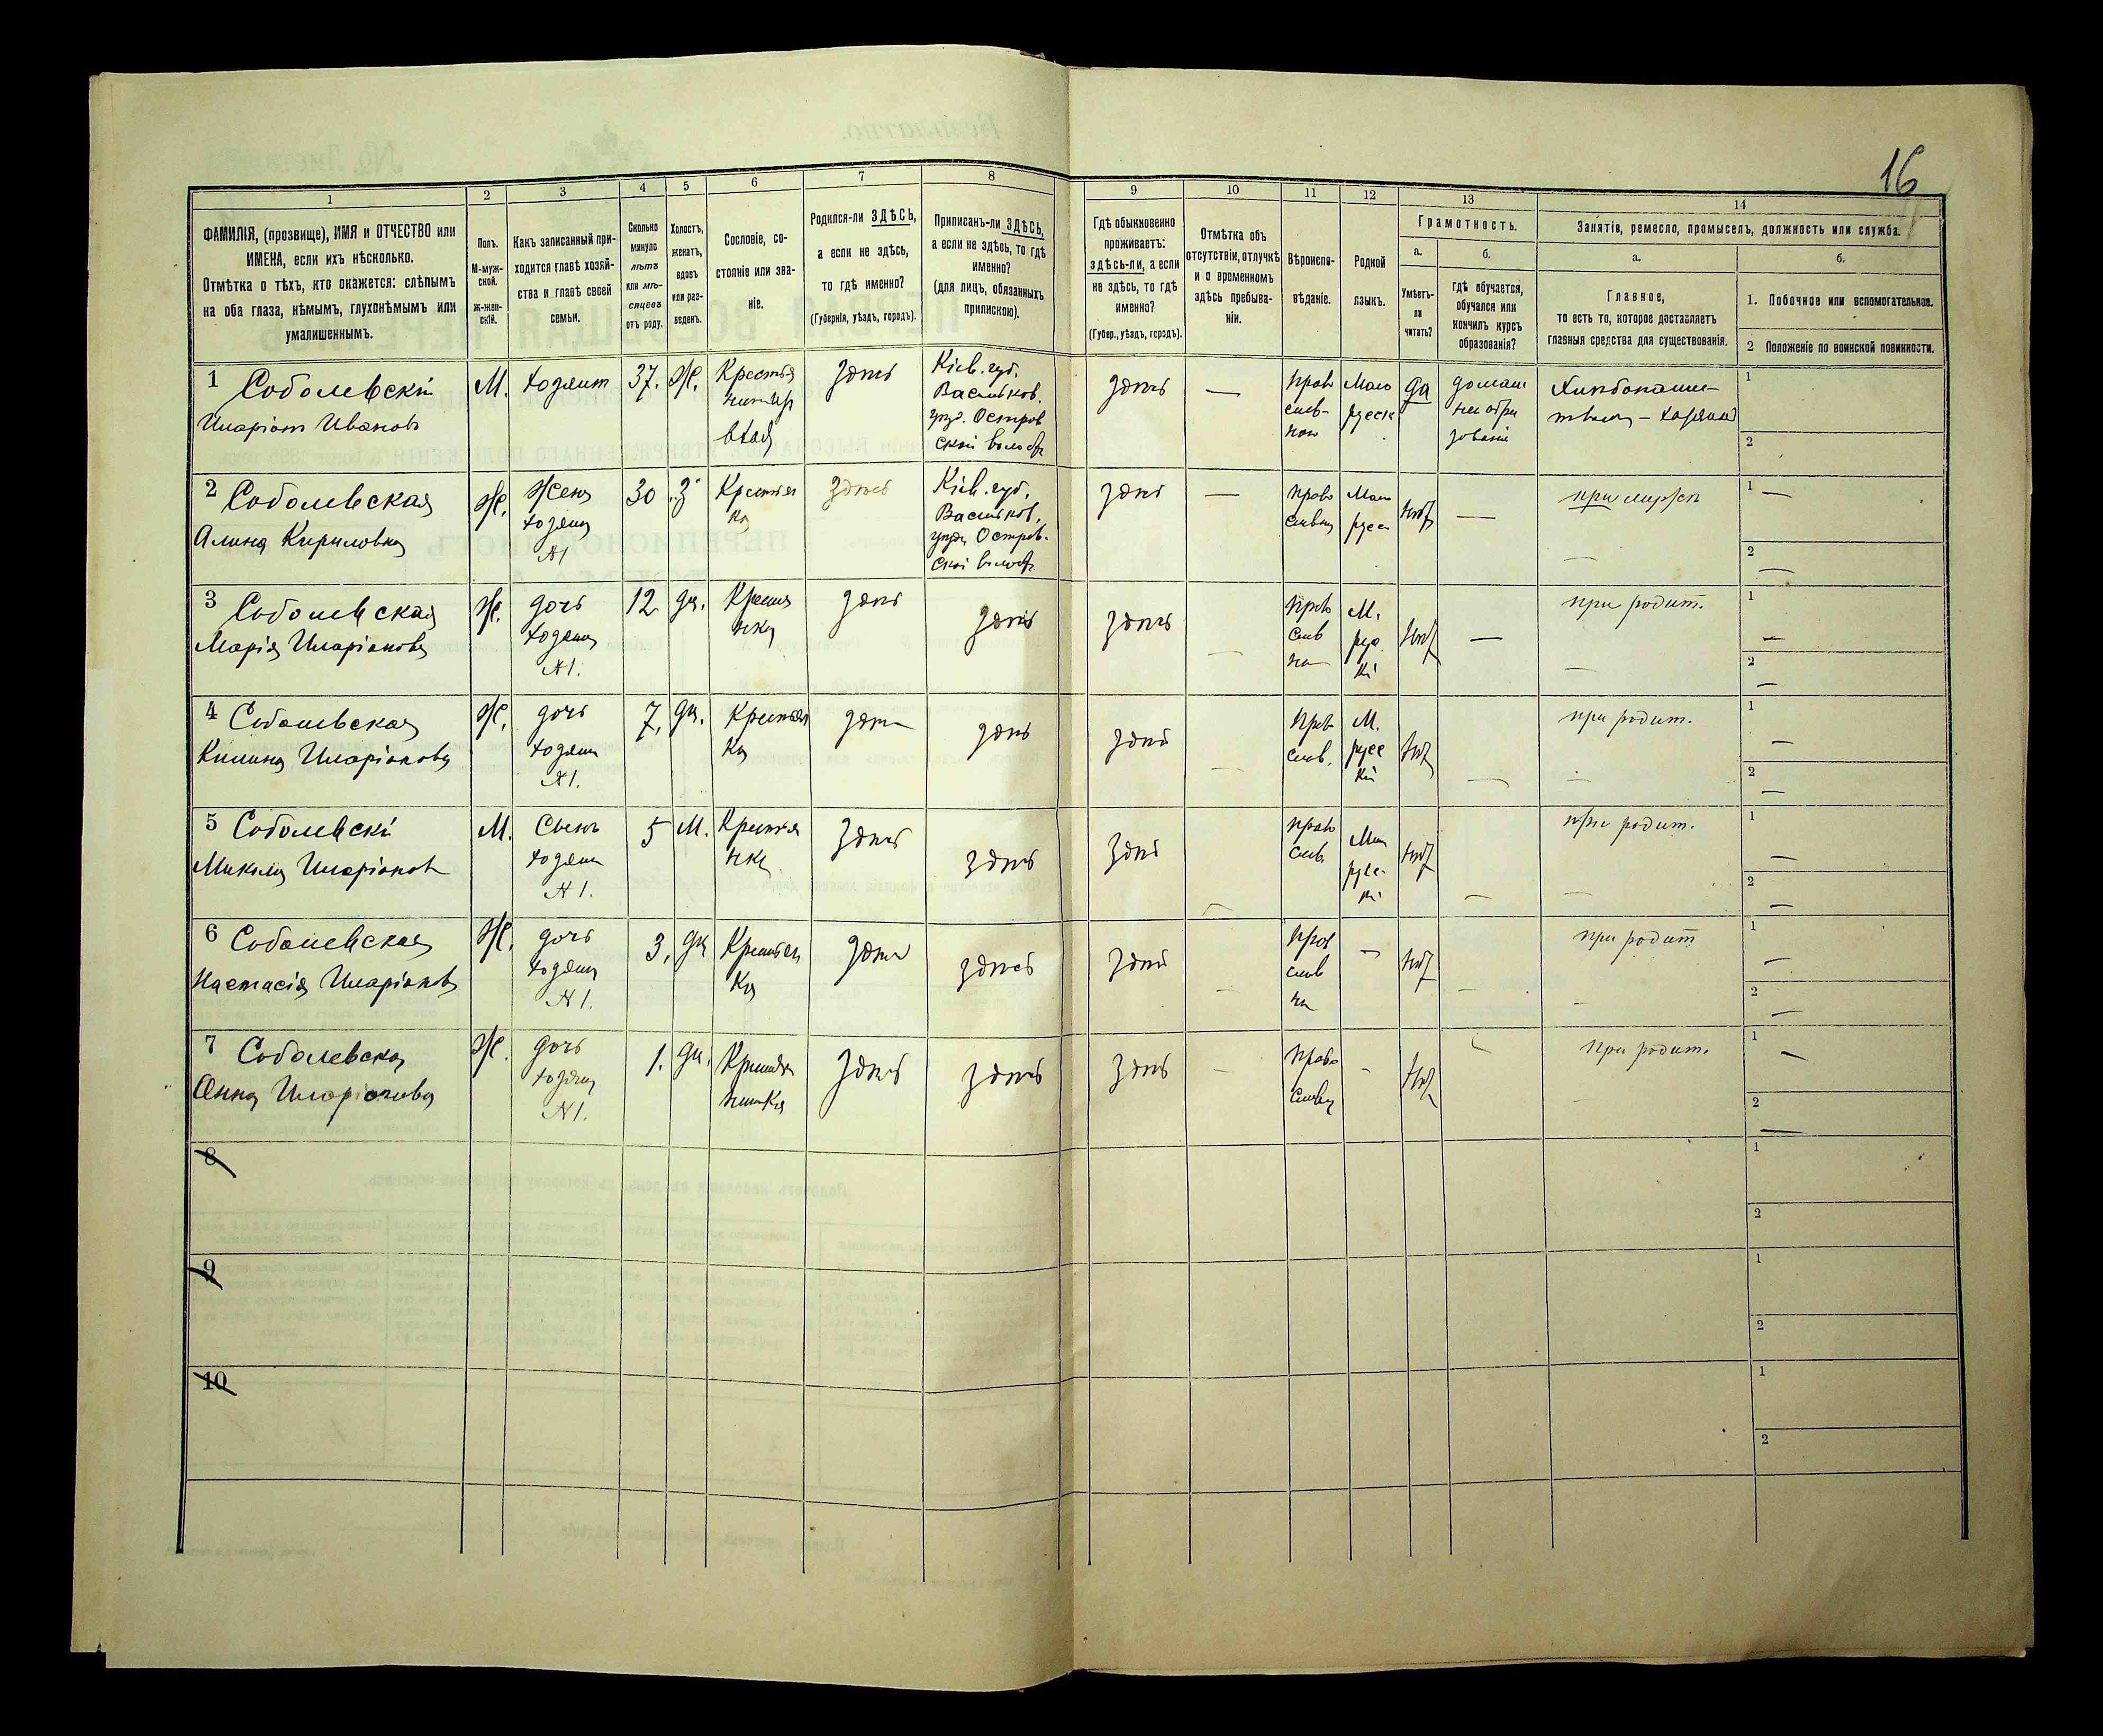 16
1
2
3
4
5
6
7
8
9
10
11
12
13
14
ФАМИЛІЯ, (прозвище), ИМЯ и ОТЧЕСТВО или
ИМЕНА, если ихъ нѣсколько.
Отмѣтка о тѣхъ, кто окажется: слѣпымъ
на оба глаза, нѣмымъ, глухонѣмымъ или
умалишеннымъ.
Полъ.
М-муж-
ской.
Ж-жен-
скій.
Какъ записанный при-
ходится главѣ хозяй-
ства и главѣ своей
семьи.
Сколько
минуло
лѣтъ
или мѣ-
сяцевъ
отъ роду.
Холостъ,
женатъ,
вдовъ
или раз-
веденъ.
Сословіе, со-
стояніе или зва-
ніе.
Родился-ли ЗДѢСЬ,
а если не здѣсь,
то гдѣ именно?
(Губернія, уѣздъ, городъ).
Приписанъ-ли ЗДѢСЬ,
а если не здѣсь, то гдѣ
именно?
(для лицъ, обязанныхъ
припискою).
Гдѣ обыкновенно
проживаетъ:
здѣсь-ли, а если
не здѣсь, то гдѣ
именно?
(Губер., уѣздъ, городъ).
Отмѣтка объ
отсутствіи, отлучкѣ
и о временномъ
здѣсь пребыва-
ніи.
Вѣроиспо-
вѣданіе.
Родной
языкъ.
Грамотность.
а.
Умѣетъ-
ли
читать?
б.
гдѣ обучается,
обучался или
кончилъ курсъ
образованія?
Занятіе, ремесло, промыселъ, должность или служба.
а.
Главное,
то есть то, которое доставляетъ
главныя средства для существованія.
б.
1. Побочное или вспомогательное.
2 Положеніе по воинской повинности.
1 Соболевскій
Иларіон Иванов
М.
хозяин
37.
Ж.
здѣсь
Кіев. губ.
Васильков.
уѣзд. Остров
ской волост
здѣсь
—
право
слав-
ное
Мало
русск
да
домаш
нее обра
зованіе
1
2
2 Соболевская
Алина Кириловна
Ж.
Жена
хозяина
№1
30
З
Крестьян
ка
здѣсь
Кіев. губ.
Васильков.
уѣзда Остров-
ской волост
здѣсь
—
право
славн
Мало
русс
нѣт
—
при мужѣ
1 —
2 —
3 Соболевская
Марія Иларіонова
Ж.
дочь
хозяина
№1.
12
дѣ.
Крестья
нка
здѣсь
здѣсь
здѣсь
—
право
слав
на
М.
рус
кі
нѣт
—
при родит.
1 —
2 —
4 Соболевская
Килина Иларіонова
Ж.
дочь
хозяина
№1.
7,
дѣ.
Крестьян
ка
здѣсь
здѣсь
здѣсь
—
прав
слав.
М.
русс
кій
нѣт
—
при родит.
1 —
2 —
5 Соболевскі
Микола Иларіонов
М.
Сынъ
хозяина
№1.
5
М.
Крестья
нка
здѣсь
здѣсь
здѣсь
—
право
слав
Мал
русс-
кі
нѣт
—
при родит.
1 —
2 —
6 Соболевская
Настасія Иларіонов
Ж.
дочь
хозяина
№1.
3,
дѣ
Крестьян
ка
здѣсь
здѣсь
здѣсь
—
прав
слав
на
—
нѣт
—
при родит
1 —
2 —
7 Соболевска
Анна Иларіонова
Ж.
дочь
хозяина
№1.
1.
дѣ.
здѣсь
здѣсь
здѣсь
—
право
славн
-
нѣт
при родит.
1 —
2 —
8
1
2
9
1
2
10
1
2